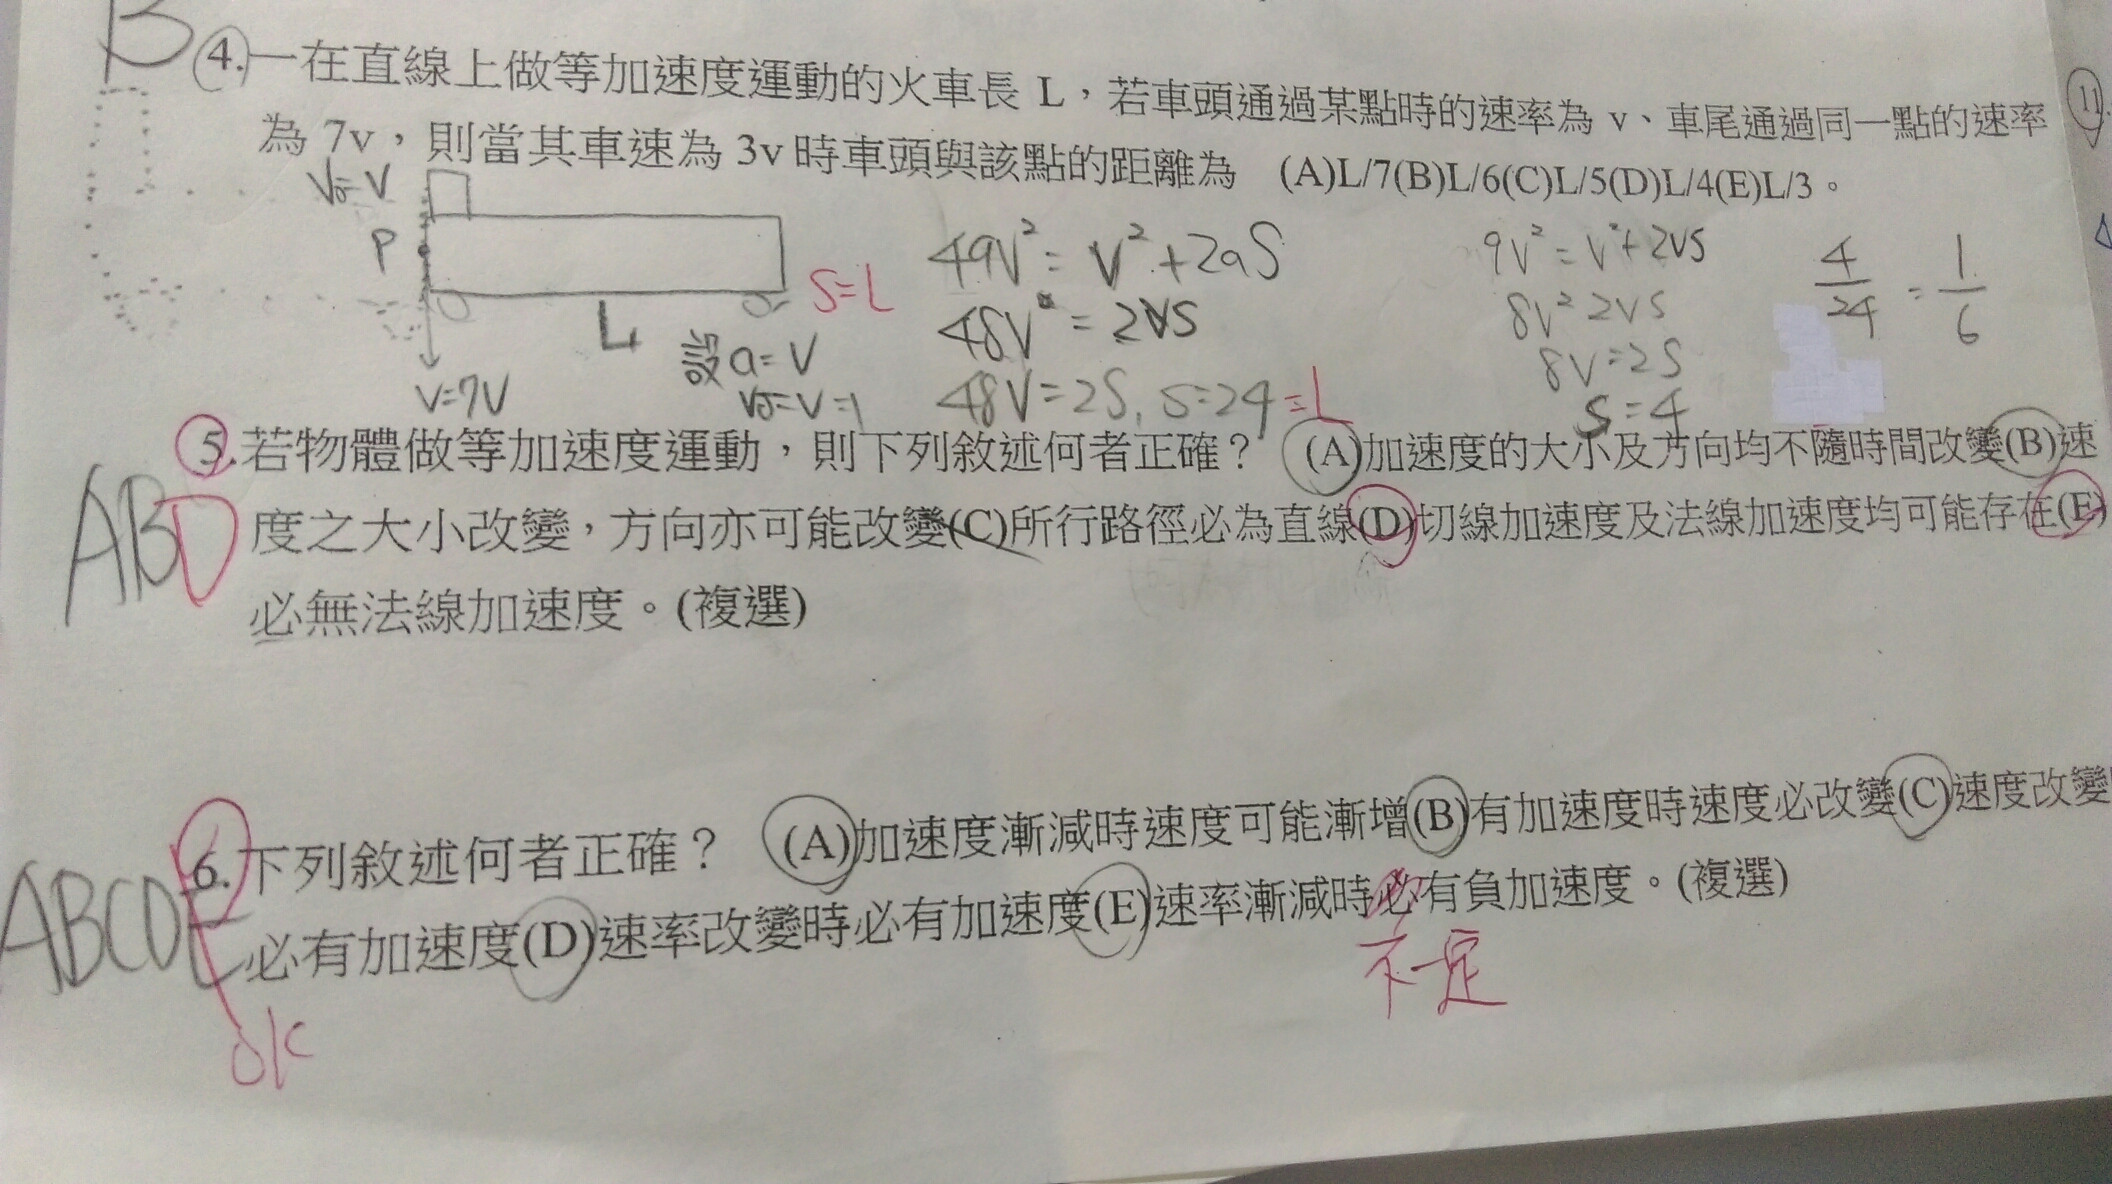 B 4.一在直線上做等加速度運動的火車長 L，若車頭通過某點時的速率為 v、車尾通過同一點的速率
為 7v，則當其車速為 3v 時車頭與該點的距離為 (A)L/7(B)L/6(C)L/5(D)L/4(E)L/3。
V₀=V
P
L
S=L
設a=V
V₀=V=1
V=7V
49V²=V²+2aS
48V²=2VS
48V=2S, S=24=L
9V²=V²+2VS
8V² 2VS
8V=2S
S=4
4/24=1/6
5.若物體做等加速度運動，則下列敘述何者正確？ (A)加速度的大小及方向均不隨時間改變(B)速
ABD 度之大小改變，方向亦可能改變(C)所行路徑必為直線(D)切線加速度及法線加速度均可能存在(E)
必無法線加速度。(複選)
6.下列敘述何者正確？ (A)加速度漸減時速度可能漸增(B)有加速度時速度必改變(C)速度改變
ABCDE 必有加速度(D)速率改變時必有加速度(E)速率漸減時必有負加速度。(複選)
不一定
ok
11